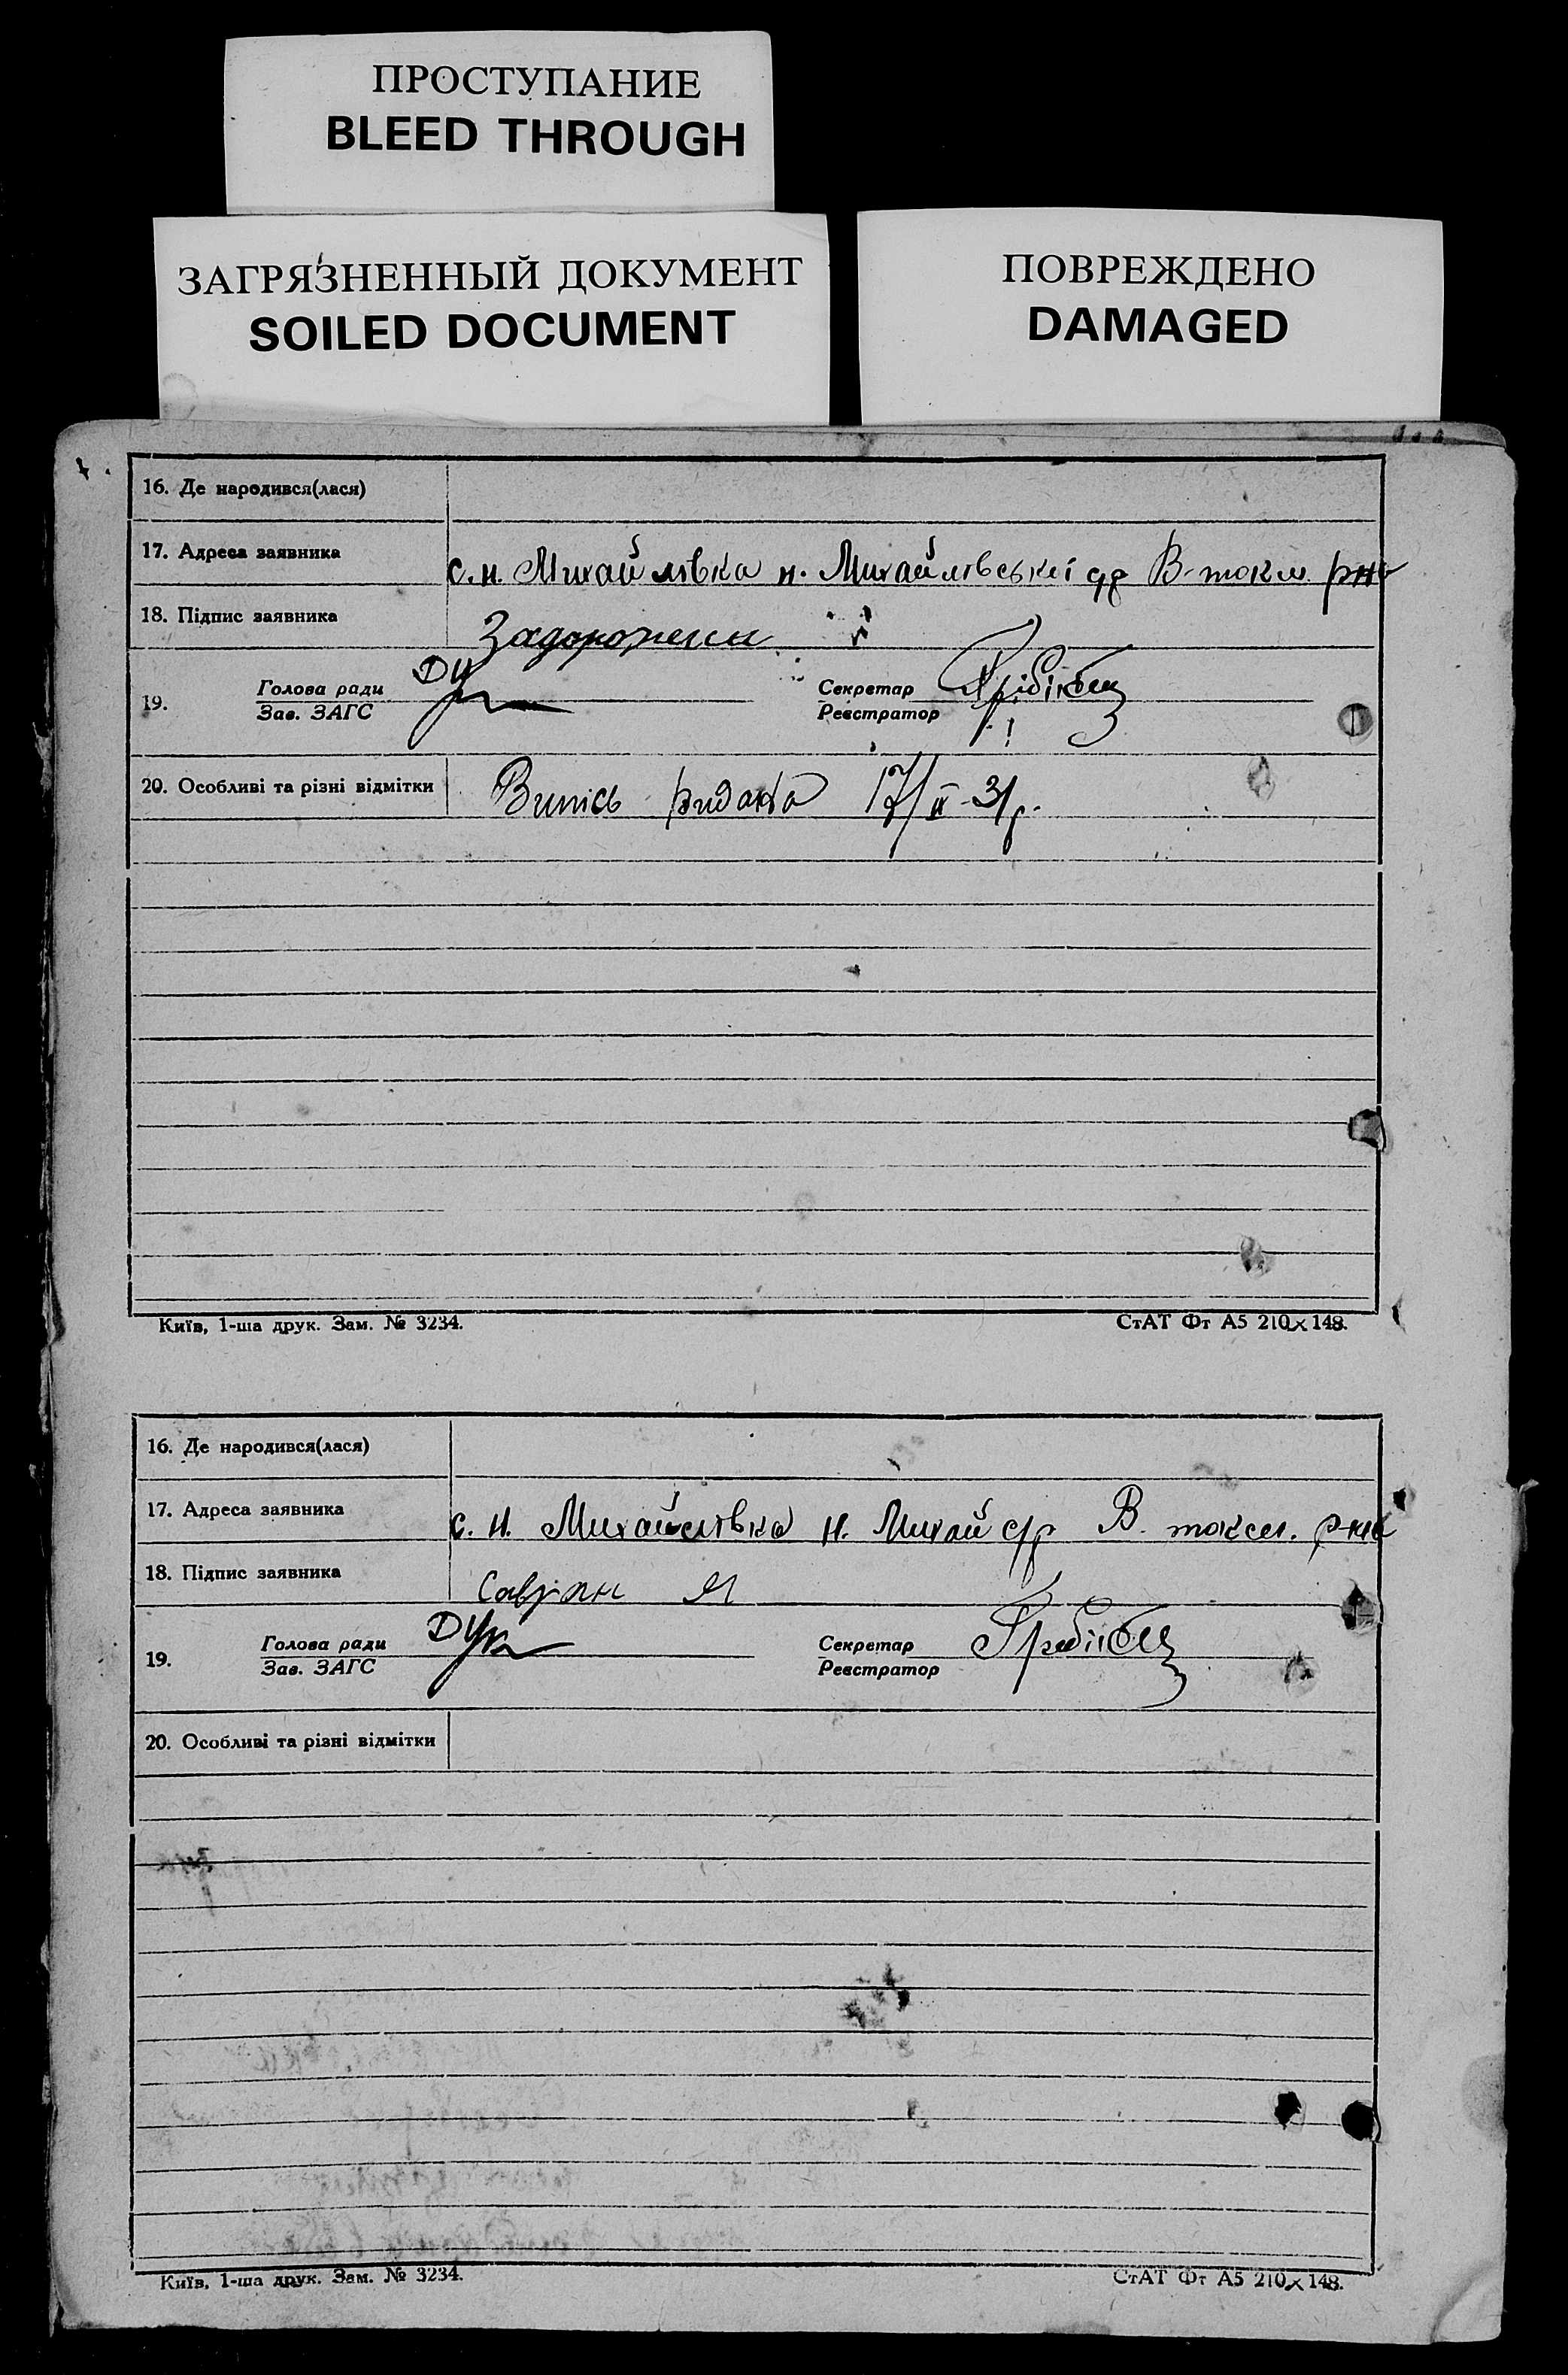 ПРОСТУПАНИЕ
BLEED THROUGH
ЗАГРЯЗНЕННЫЙ ДОКУМЕНТ
SOILED DOCUMENT
ПОВРЕЖДЕНО
DAMAGED
16. Де народився(лася)
17. Адреса заявника с. н. Михайлівка н. Михайлівської с/р В-токм. р-на
18. Підпис заявника
19. Голова ради
Зав. ЗАГС
Секретар
Реєстратор
20. Особливі та різні відмітки Випись видана 17/II-31 р.
Київ, 1-ша друк. Зам. № 3234. СтАТ Фт А5 210×148.
16. Де народився(лася)
17. Адреса заявника с. н. Михайлівка н. Михай с/р В. токм. р-на
18. Підпис заявника
19. Голова ради
Зав. ЗАГС
Секретар
Реєстратор
20. Особливі та різні відмітки
Київ, 1-ша друк. Зам. № 3234. СтАТ Фт А5 210×148.